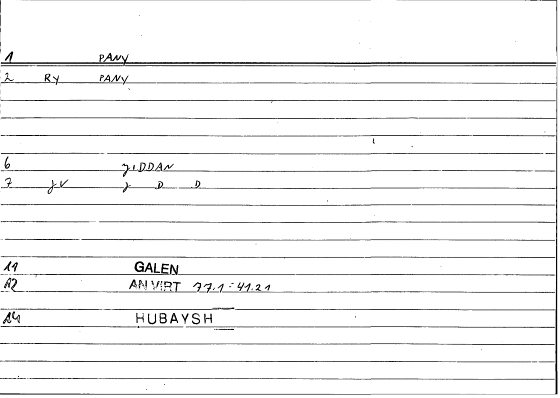 1 PANY
2 RY PANY
6 JIDDAN
7 JV J D D
11 GALEN
12 AN VIRT 77.1-41.21
14 HUBAYSH